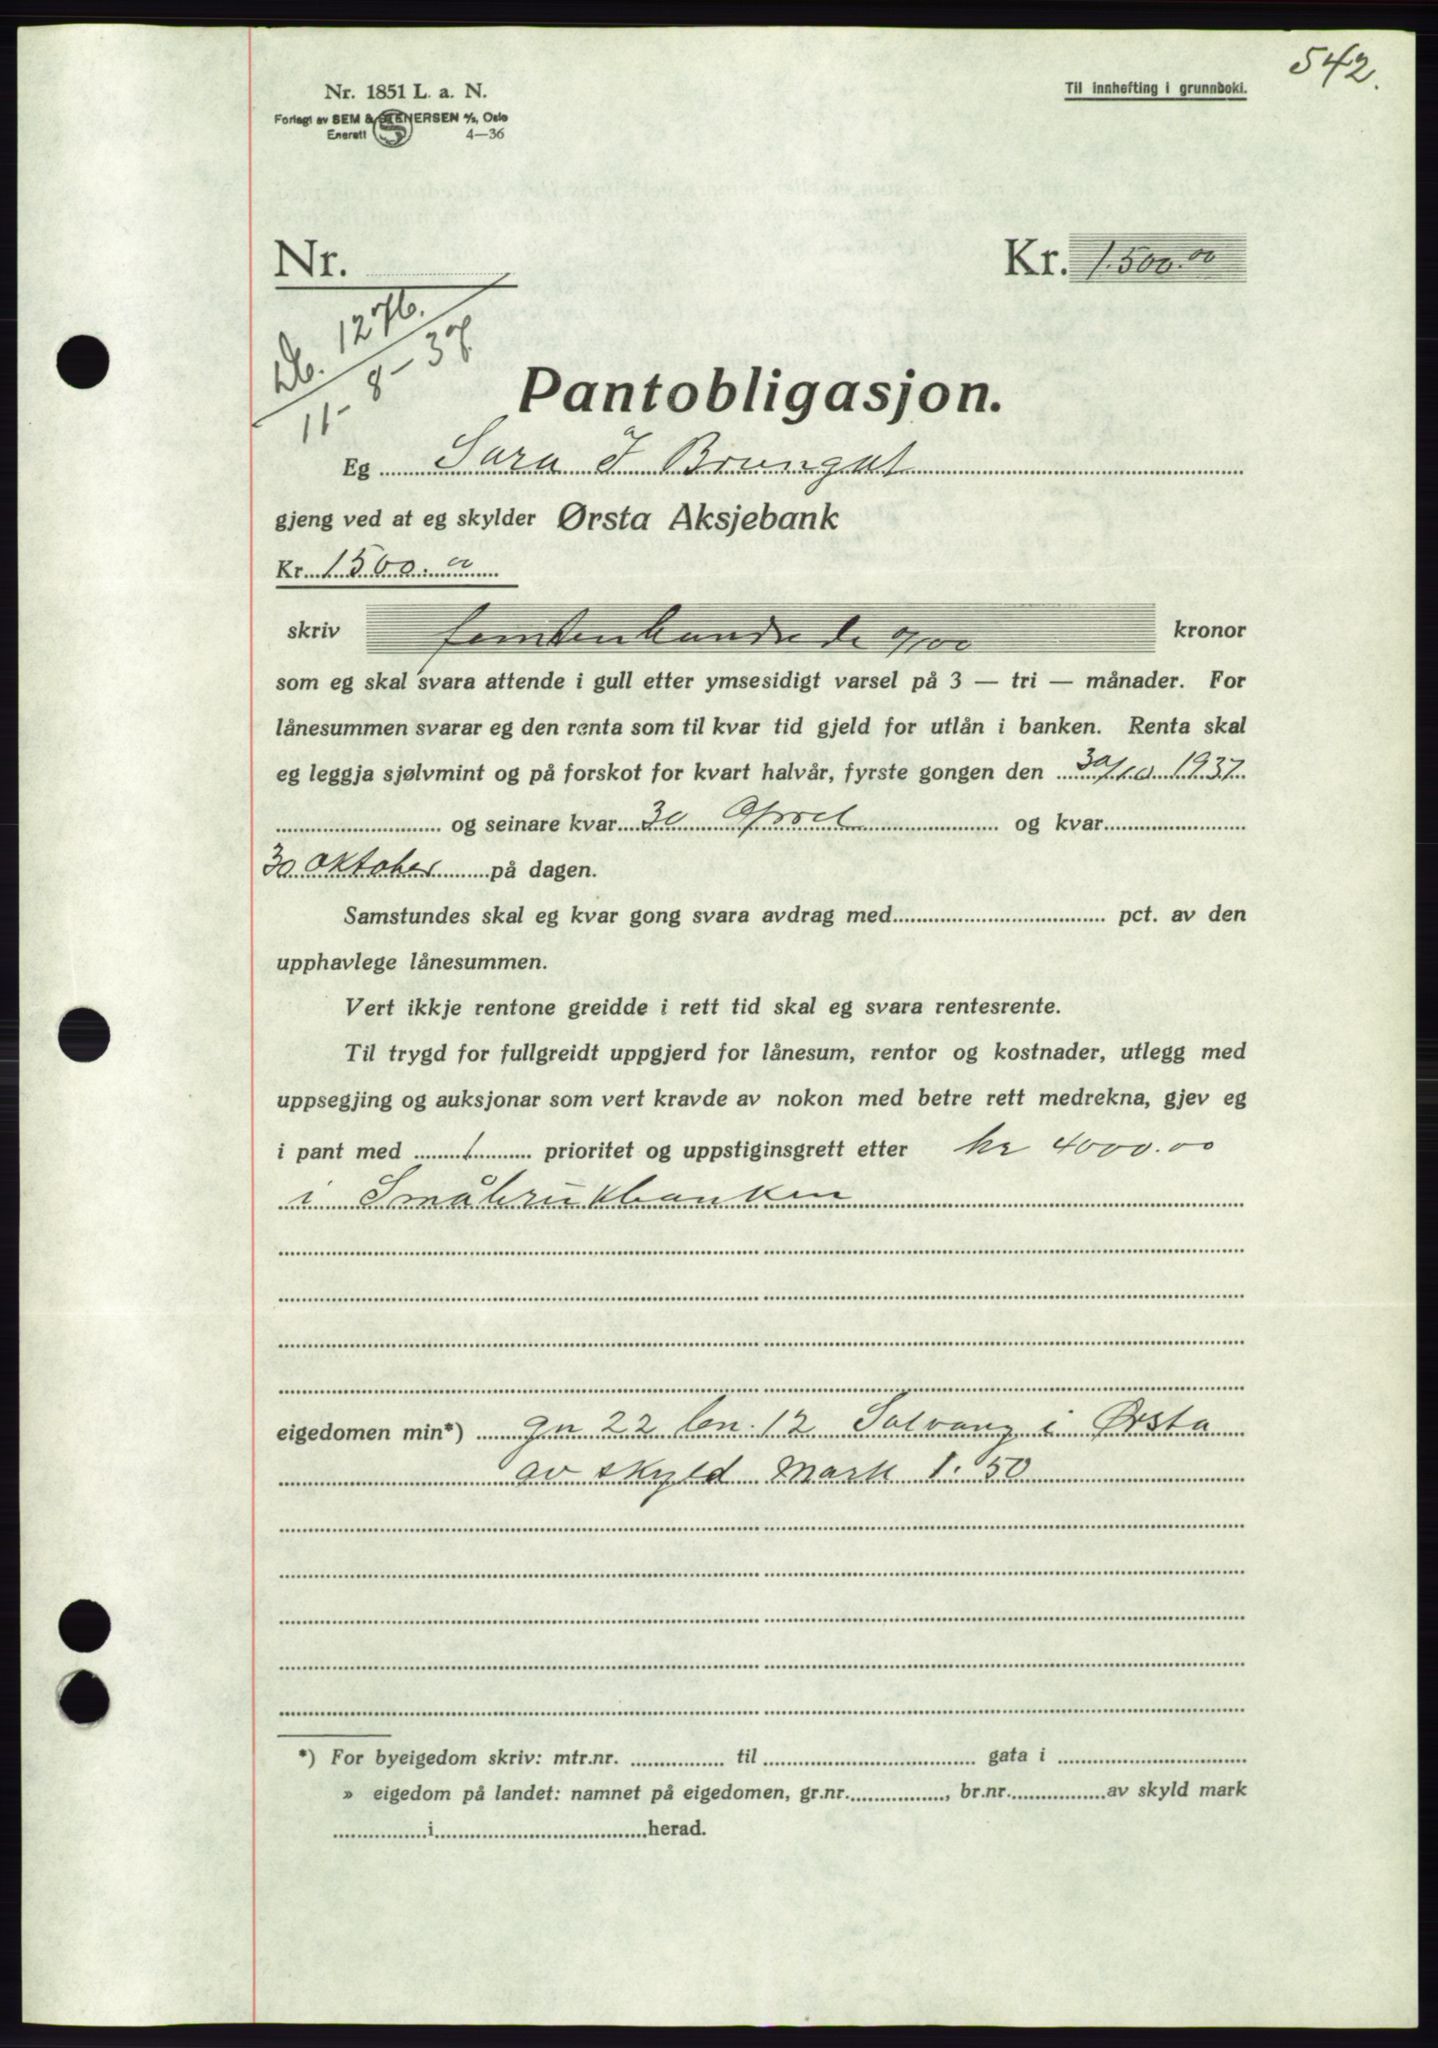 542.
Nr. 1851 L. a. N.
Til innhefting i grunnboki.
Forlagt av SEM & STENERSEN A/S, Oslo
Enerett 4—36
Nr. Kr. 1.500.00
Db. 1276.
11-8-37.
Pantobligasjon.
Eg Sara I Brungot
gjeng ved at eg skylder Ørsta Aksjebank
Kr. 1500.00
skriv femtenhundrede 0/00 kronor
som eg skal svara attende i gull etter ymsesidigt varsel på 3 — tri — månader. For
lånesummen svarar eg den renta som til kvar tid gjeld for utlån i banken. Renta skal
eg leggja sjølvmint og på forskot for kvart halvår, fyrste gongen den 30/10 1937
og seinare kvar 30 April og kvar
30 Oktober på dagen.
Samstundes skal eg kvar gong svara avdrag med pct. av den
upphavlege lånesummen.
Vert ikkje rentone greidde i rett tid skal eg svara rentesrente.
Til trygd for fullgreidt uppgjerd for lånesum, rentor og kostnader, utlegg med
uppsegjing og auksjonar som vert kravde av nokon med betre rett medrekna, gjev eg
i pant med 1 prioritet og uppstiginsgrett etter kr 4000.00
i Småbrukbanken
eigedomen min*) gn 22 bn. 12 Solvang i Ørsta
av skyld mark 1.50
*) For byeigedom skriv: mtr.nr. til gata i
» eigedom på landet: namnet på eigedomen, gr.nr. , br.nr. av skyld mark
i herad.